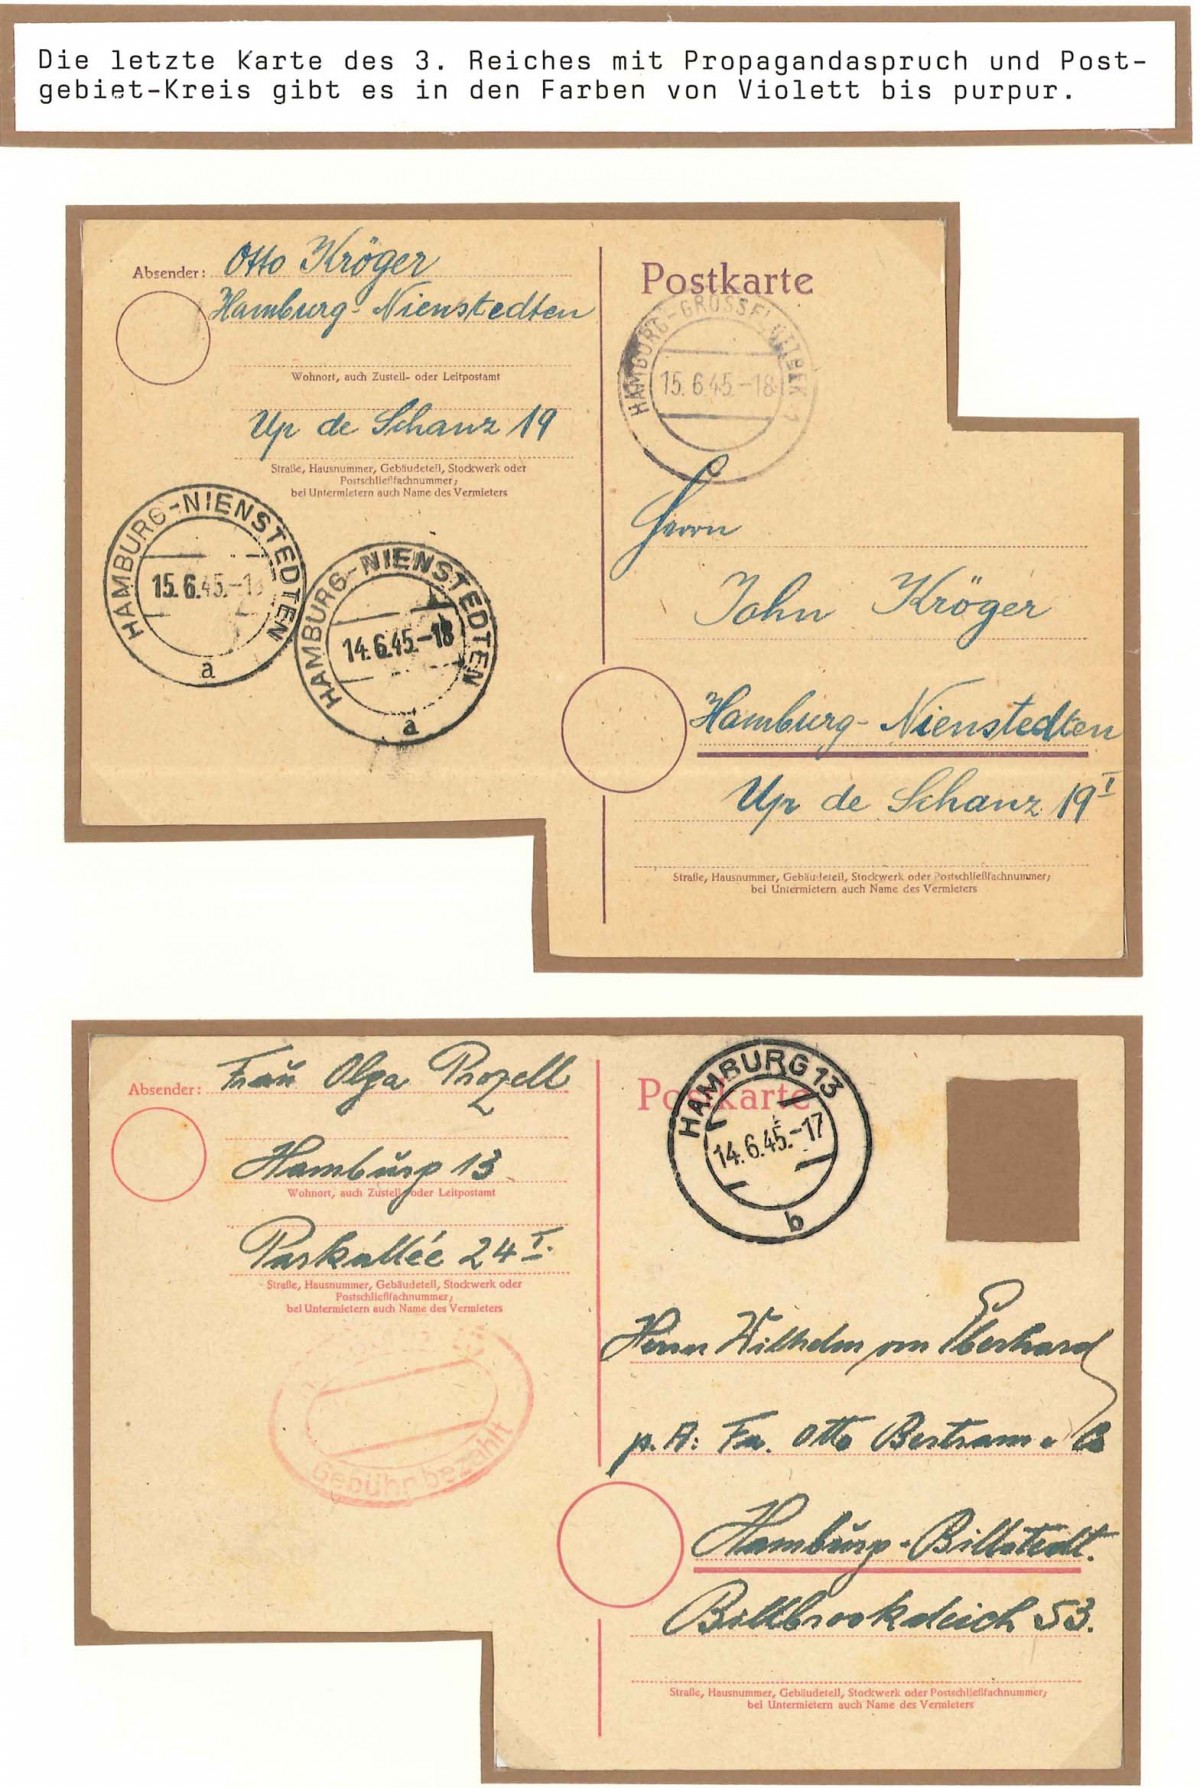 Die letzte Karte des 3. Reiches mit Propagandaspruch und Post-
gebiet-Kreis gibt es in den Farben von Violett bis purpur.
Absender: Otto Kröger
Hamburg-Nienstedten
Wohnort, auch Zustell- oder Leitpostamt
Up de Schanz 19
Straße, Hausnummer, Gebäudeteil, Stockwerk oder
Postschließfachnummer;
bei Untermietern auch Name des Vermieters
HAMBURG-NIENSTEDTEN
15.6.45.-18
a
HAMBURG-NIENSTEDTEN
14.6.45.-18
a
Postkarte
HAMBURG-GROSSFLOTTBEK 1
15.6.45.-18
c
Herrn
John Kröger
Hamburg-Nienstedten
Up de Schanz 19 I
Straße, Hausnummer, Gebäudeteil, Stockwerk oder Postschließfachnummer;
bei Untermietern auch Name des Vermieters
Absender: Frau Olga Prozell
Hamburg 13
Wohnort, auch Zustell- oder Leitpostamt
Parkallee 24 I.
Straße, Hausnummer, Gebäudeteil, Stockwerk oder
Postschließfachnummer;
bei Untermietern auch Name des Vermieters
Gebühr bezahlt
Postkarte
HAMBURG 13
14.6.45.-17
b
Herrn Wilhelm Eberhard
p. A: Fa. Otto Bertram
Hamburg-Billstedt.
Billbrookdeich 53.
Straße, Hausnummer, Gebäudeteil, Stockwerk oder Postschließfachnummer;
bei Untermietern auch Name des Vermieters